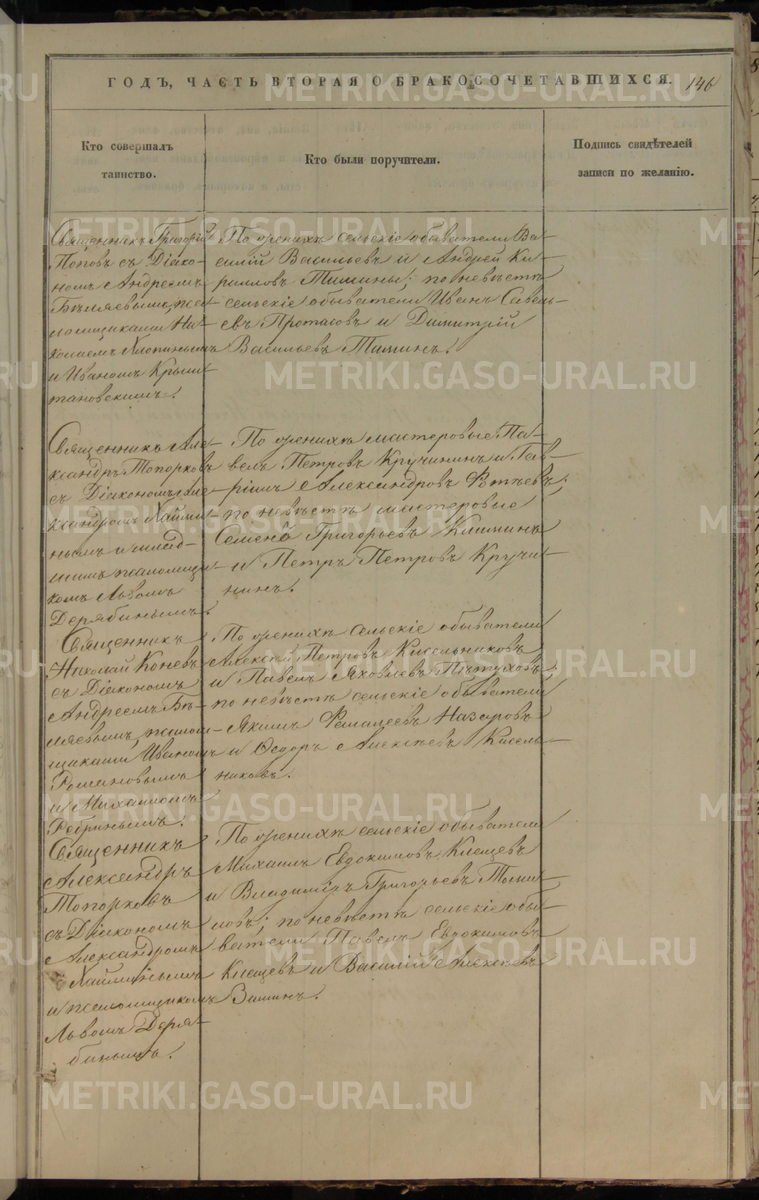 ГОДЪ, ЧАСТЬ ВТОРАЯ О БРАКОСОЧЕТАВШИХСЯ. 146
Кто совершалъ
таинство.
Кто были поручители.
Подпись свидѣтелей
записи по желанію.
Священникъ Григорій
Поповъ съ Діако-
номъ Андреемъ
Бѣляевымъ, пса-
ломщиками Ни-
колаемъ Хлопинымъ
и Иваномъ Крыш
тановскимъ.
По женихѣ сельскіе обыватели Ва-
силій Васильевъ и Андрей Ки-
рилловъ Тимины; по невѣстѣ
сельскіе обыватели Иванъ Савель-
евъ Протасовъ и Димитрій
Васильевъ Тиминъ.
Священникъ Але-
ксандръ Топорковъ
съ Діакономъ Але-
ксандромъ
нымъ и
псаломщи-
комъ Львомъ
Дерябинымъ.
По женихѣ мастеровые Па-
велъ Петровъ Кручининъ и Гав-
ріилъ Александровъ
по невѣстѣ мастеровые
Семенъ Григорьевъ Климинъ
и Петръ Петровъ Кручи-
нинъ.
Священникъ
Николай Коневъ
съ Діакономъ
Андреемъ Бѣ-
ляевымъ, псалом-
щиками Иваномъ
Романовымъ
и Михаиломъ
Ребринымъ.
По женихѣ сельскіе обыватели
Алексѣй Петровъ Кисельниковъ
и Павелъ Яковлевъ Пѣтуховъ;
по невѣстѣ сельскіе обыватели
Якимъ Назаровъ
и Ѳедоръ Алексѣевъ Кисель-
никовъ.
Священникъ
Александръ
Топорковъ
съ Діакономъ
Александромъ
и псаломщикомъ
Львомъ Деря-
бинымъ.
По женихѣ сельскіе обыватели
Михаилъ Евдокимовъ Клещевъ
и Владиміръ Григорьевъ Томи-
ловъ; по невѣстѣ сельскіе обы-
ватели Павелъ Евдокимовъ
Клещевъ и Василій Алексѣевъ
Зиминъ.
METRIKI.GASO-URAL.RU